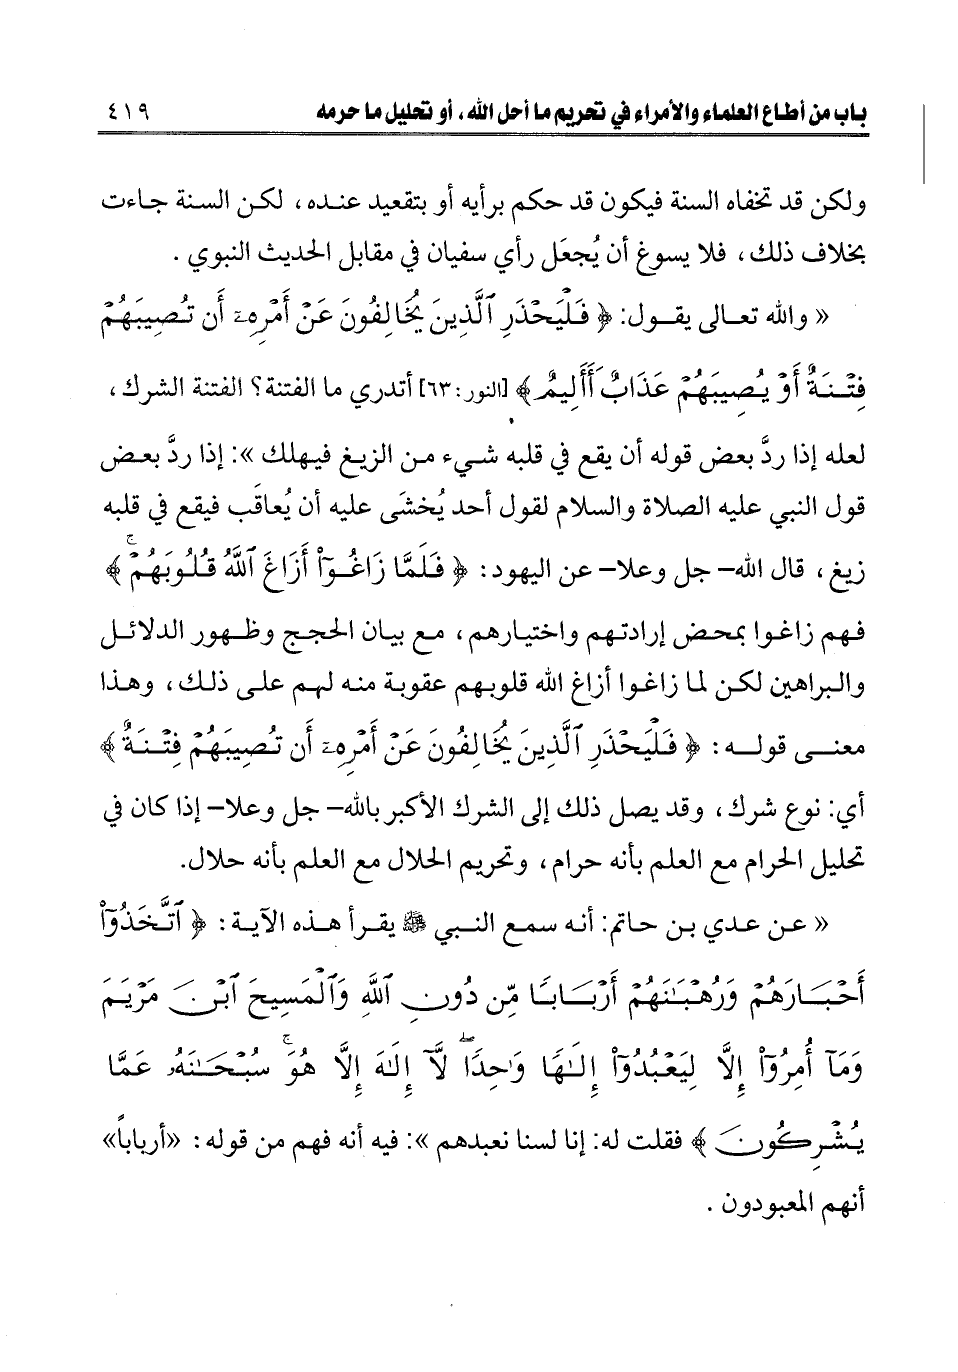 باب من أطاع العلماء والأمراء في تحريم ما أحل الله، أو تحليل ما حرمه ٤١٩
ولكن قد تخفاه السنة فيكون قد حكم برأيه أو بتقعيد عنده، لكن السنة جاءت
بخلاف ذلك، فلا يسوغ أن يُجعَل رأي سفيان في مقابل الحديث النبوي .
« والله تعالى يقول: ﴿ فَلْيَحْذَرِ ٱلَّذِينَ يُخَالِفُونَ عَنْ أَمْرِهِۦٓ أَن تُصِيبَهُمْ
فِتْنَةٌ أَوْ يُصِيبَهُمْ عَذَابٌ أَلِيمٌ﴾ [النور: ٦٣] أتدري ما الفتنة؟ الفتنة الشرك،
لعله إذا ردَّ بعض قوله أن يقع في قلبه شيء من الزيغ فيهلك »: إذا ردَّ بعض
قول النبي عليه الصلاة والسلام لقول أحد يُخشَى عليه أن يُعاقَب فيقع في قلبه
زيغ، قال الله- جل وعلا- عن اليهود: ﴿ فَلَمَّا زَاغُوٓا۟ أَزَاغَ ٱللَّهُ قُلُوبَهُمْ ۚ ﴾
فهم زاغوا بمحض إرادتهم واختيارهم، مع بيان الحجج وظهور الدلائل
والبراهين لكن لما زاغوا أزاغ الله قلوبهم عقوبة منه لهم على ذلك، وهذا
معنى قوله: ﴿ فَلْيَحْذَرِ ٱلَّذِينَ يُخَالِفُونَ عَنْ أَمْرِهِۦٓ أَن تُصِيبَهُمْ فِتْنَةٌ ﴾
أي: نوع شرك، وقد يصل ذلك إلى الشرك الأكبر بالله- جل وعلا- إذا كان في
تحليل الحرام مع العلم بأنه حرام، وتحريم الحلال مع العلم بأنه حلال.
« عن عدي بن حاتم: أنه سمع النبي ﷺ يقرأ هذه الآية: ﴿ ٱتَّخَذُوٓا۟
أَحْبَارَهُمْ وَرُهْبَـٰنَهُمْ أَرْبَابًا مِّن دُونِ ٱللَّهِ وَٱلْمَسِيحَ ٱبْنَ مَرْيَمَ
وَمَآ أُمِرُوٓا۟ إِلَّا لِيَعْبُدُوٓا۟ إِلَـٰهًا وَٰحِدًا ۖ لَّآ إِلَـٰهَ إِلَّا هُوَ ۚ سُبْحَـٰنَهُۥ عَمَّا
يُشْرِكُونَ ﴾ فقلت له: إنا لسنا نعبدهم »: فيه أنه فهم من قوله: «أرباباً»
أنهم المعبودون .